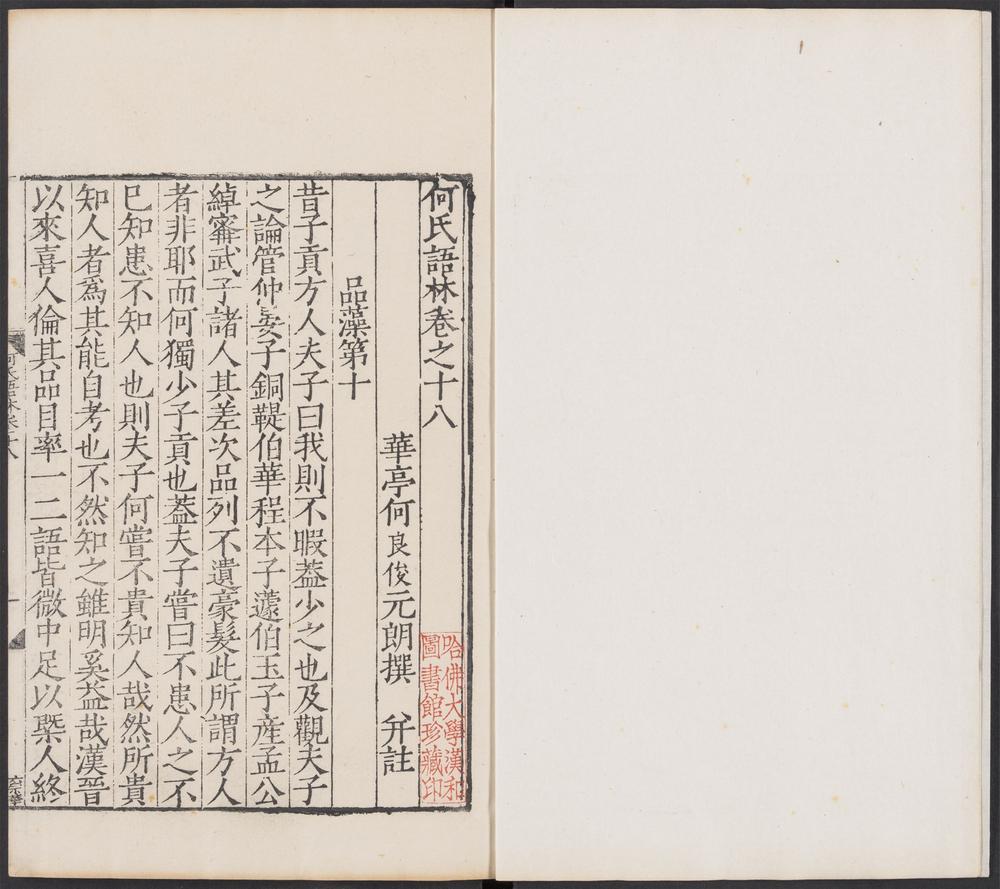 何氏語林卷之十八
華亭何良俊元朗撰 并註
品藻第十
昔子貢方人夫子曰我則不暇蓋少之也及觀夫子
之論管仲晏子銅鞮伯華程本子蘧伯玉子産孟公
綽甯武子諸人其差次品列不遺豪髮此所謂方人
者非耶而何獨少子貢也蓋夫子嘗曰不患人之不
已知患不知人也則夫子何嘗不貴知人哉然所貴
知人者爲其能自考也不然知之雖明奚益哉漢晉
以來喜人倫其品目率一二語皆微中足以槩人終
哈佛大學漢和
圖書館珍藏印
何氏語林卷十八
一